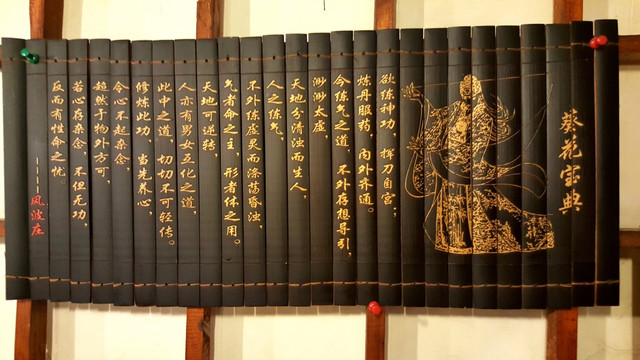 葵花宝典
欲练神功，挥刀自宫；
炼丹服药，内外齐通。
今练气之道，不外存想导引，
渺渺太虚，
天地分清浊而生人，
人之练气，
不外练虚灵而涤荡昏浊，
气者命之主，形者体之用。
天地可逆转，
人亦有男女互化之道，
此中之道，切切不可轻传。
修炼此功，当先养心，
令心不起杂念，
超然于物外方可，
若心存杂念，不但无功，
反而有性命之忧。
----风波庄